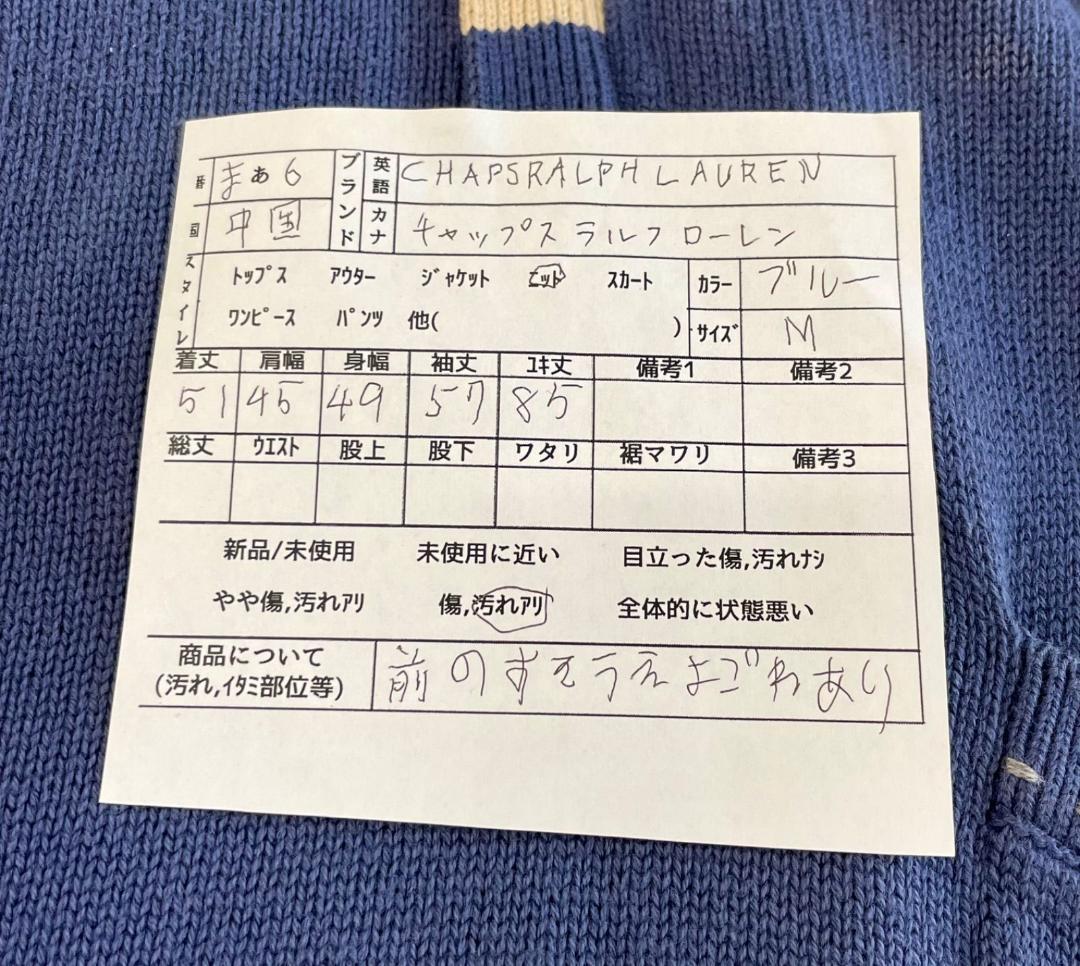 番 まあ6 ブランド 英語 CHAPSRALPH LAUREN
国 中国 カナ チャップスラルフローレン
スタイル トップス アウター ジャケット ニット スカート カラー ブルー
ワンピース パンツ 他( ) サイズ M
着丈 肩幅 身幅 袖丈 ユキ丈 備考1 備考2
51 45 49 57 85
総丈 ウエスト 股上 股下 ワタリ 裾マワリ 備考3
新品/未使用 未使用に近い 目立った傷,汚れナシ
やや傷,汚れアリ 傷,汚れアリ 全体的に状態悪い
商品について 前のすそうえよごれあり
(汚れ,イタミ部位等)